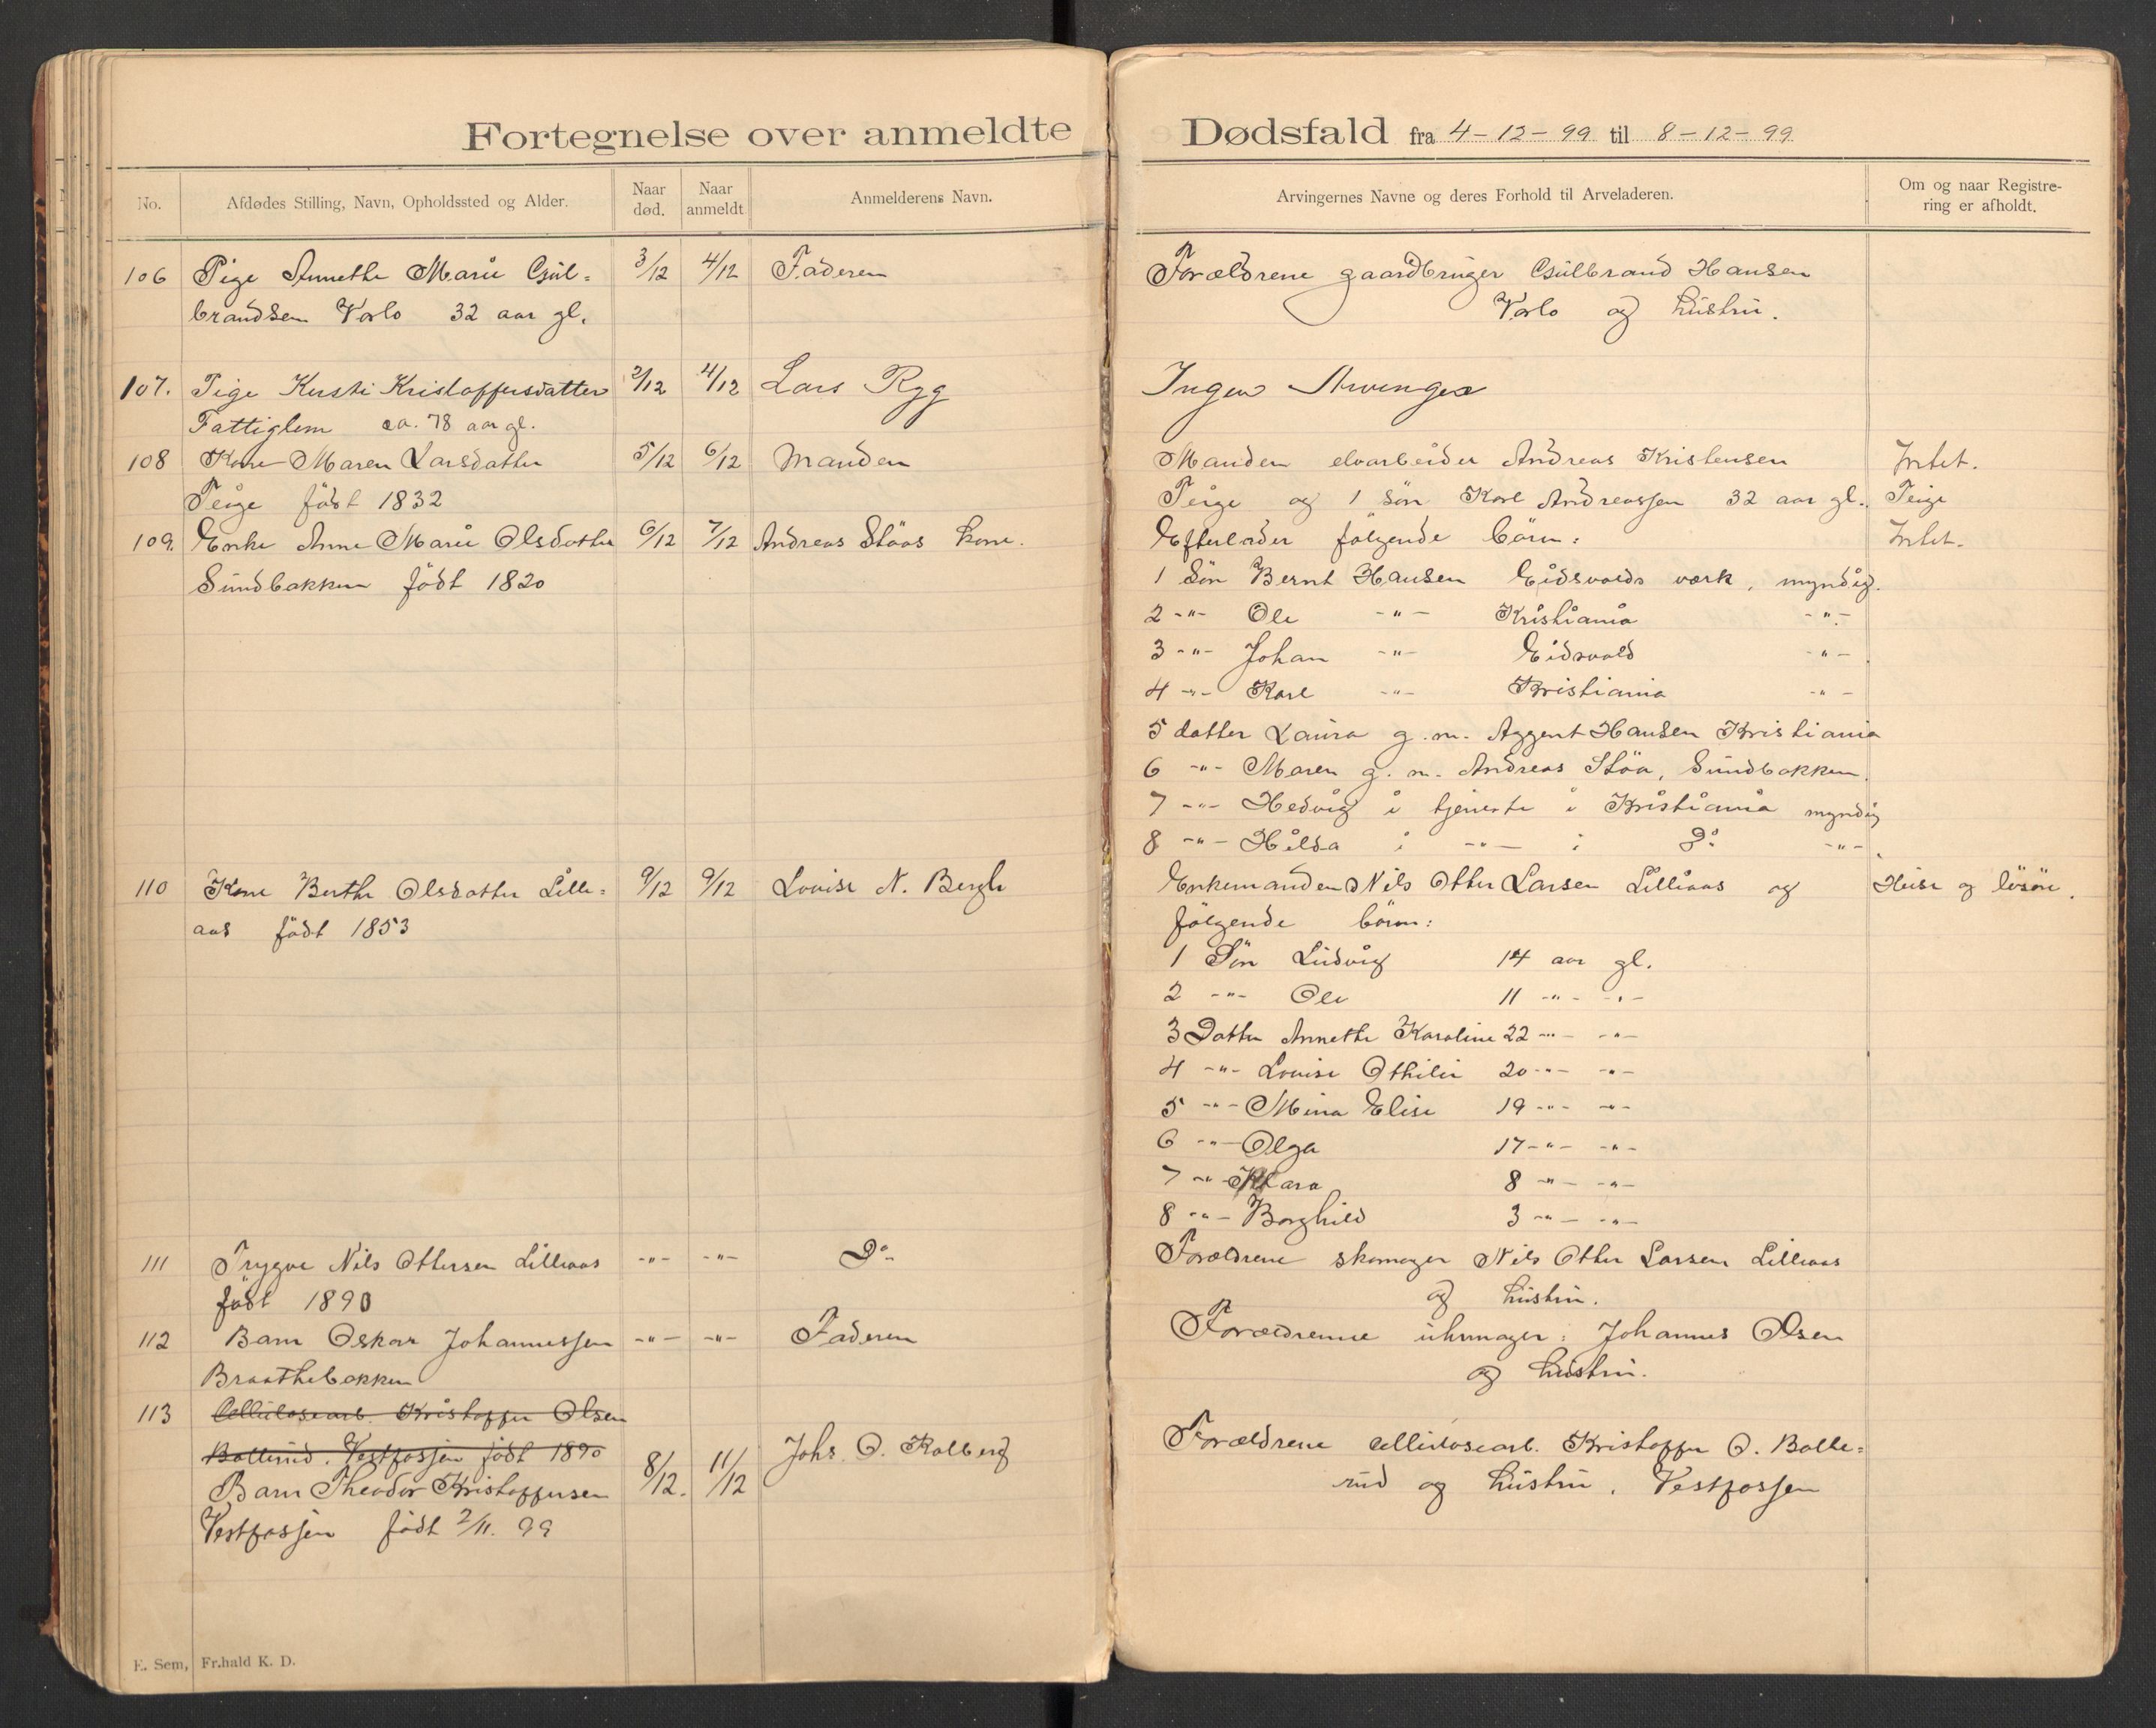 Fortegnelse over anmeldte
No. Afdødes Stilling, Navn, Opholdssted og Alder. Naar død. Naar anmeldt Anmelderens Navn.
106 Pige Annethe Marie Gul- 3/12 4/12 Faderen
brandsen Varlo 32 aar gl.
107. Pige Kirsti Kristoffersdatter 2/12 4/12 Lars Ryg
Fattiglem ca. 78 aar gl.
108 Kone Maren Larsdatter 5/12 6/12 Manden
Teige født 1832
109. Enke Anne Marie Olsdatter 6/12 7/12 Andreas Støas kone.
Sundbakken født 1820
110 Kone Berthe Olsdatter Lille- 9/12 9/12 Louise N. Bergh
aas født 1853
111 Trygve Nils Ottersen Lilleaas -"- -"- Do
født 1890
112 Barn Oskar Johannessen -"- -"- Faderen
Braathebakken
113 Cellulosearb. Kristoffer Olsen
Bollerud. Vestfossen født 1890
Barn Theodor Kristoffersen 8/12. 11/12 Johs. O. Kolberg
Vestfossen født 2/11. 99
E. Sem, Fr.hald K. D.
Dødsfald fra 4-12-99 til 8-12-99
Arvingernes Navne og deres Forhold til Arveladeren. Om og naar Registre-
ring er afholdt.
Forældrene gaardbruger Gulbrand Hansen
Varlo og hustru.
Ingen Arvinger
Manden elvarbeider Andreas Kristensen Intet.
Teige og 1 Søn Karl Andreassen 32 aar gl. Teige
Efterlader følgende børn: Intet.
1 Søn Bernt Hansen Eidsvolds værk, myndig.
2 -"- Ole -"- Kristiania -"-
3 -"- Johan -"- Eidsvold -"-
4 -"- Karl -"- Kristiania -"-
5 datter Laura g. m. Aggent Hansen Kristiania
6 -"- Maren g. m. Andreas Støa, Sundbakken.
7 -"- Hedvig i tjeneste i Kristiania myndig
8 -"- Hilda i -"- i Do -"-
Enkemanden Nils Otter Larsen Lilleaas og Huse og løsøre.
følgende børn:
1 Søn Ludvig 14 aar gl.
2 -"- Ole 11 -"- -"-
3 Datter Annethe Karoline 22 -"- -"-
4 -"- Louise Othilie 20 -"- -"-
5 -"- Mina Elise 19 -"- -"-
6 -"- Olga 17 -"- -"-
7 -"- Klara 8 -"- -"-
8 -"- Borghild 3 -"- -"-
Forældrene skomager Nils Otter Larsen Lilleaas
og hustru.
Forældrenne uhrmager: Johannes Olsen
og hustru.
Forældrene cellulosearb. Kristoffer O. Bolle-
rud og hustru. Vestfossen